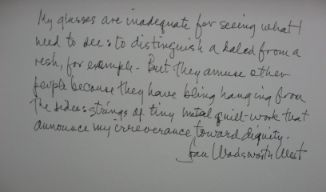 My glasses are inadequate for seeing what I
need to see: to distinguish a naked from a
mesh, for example. But they amuse other
people because they have bling hanging from
the sides: strings of tiny metal quill-work that
announce my irreverance toward dignity.
Joan Wadsworth West